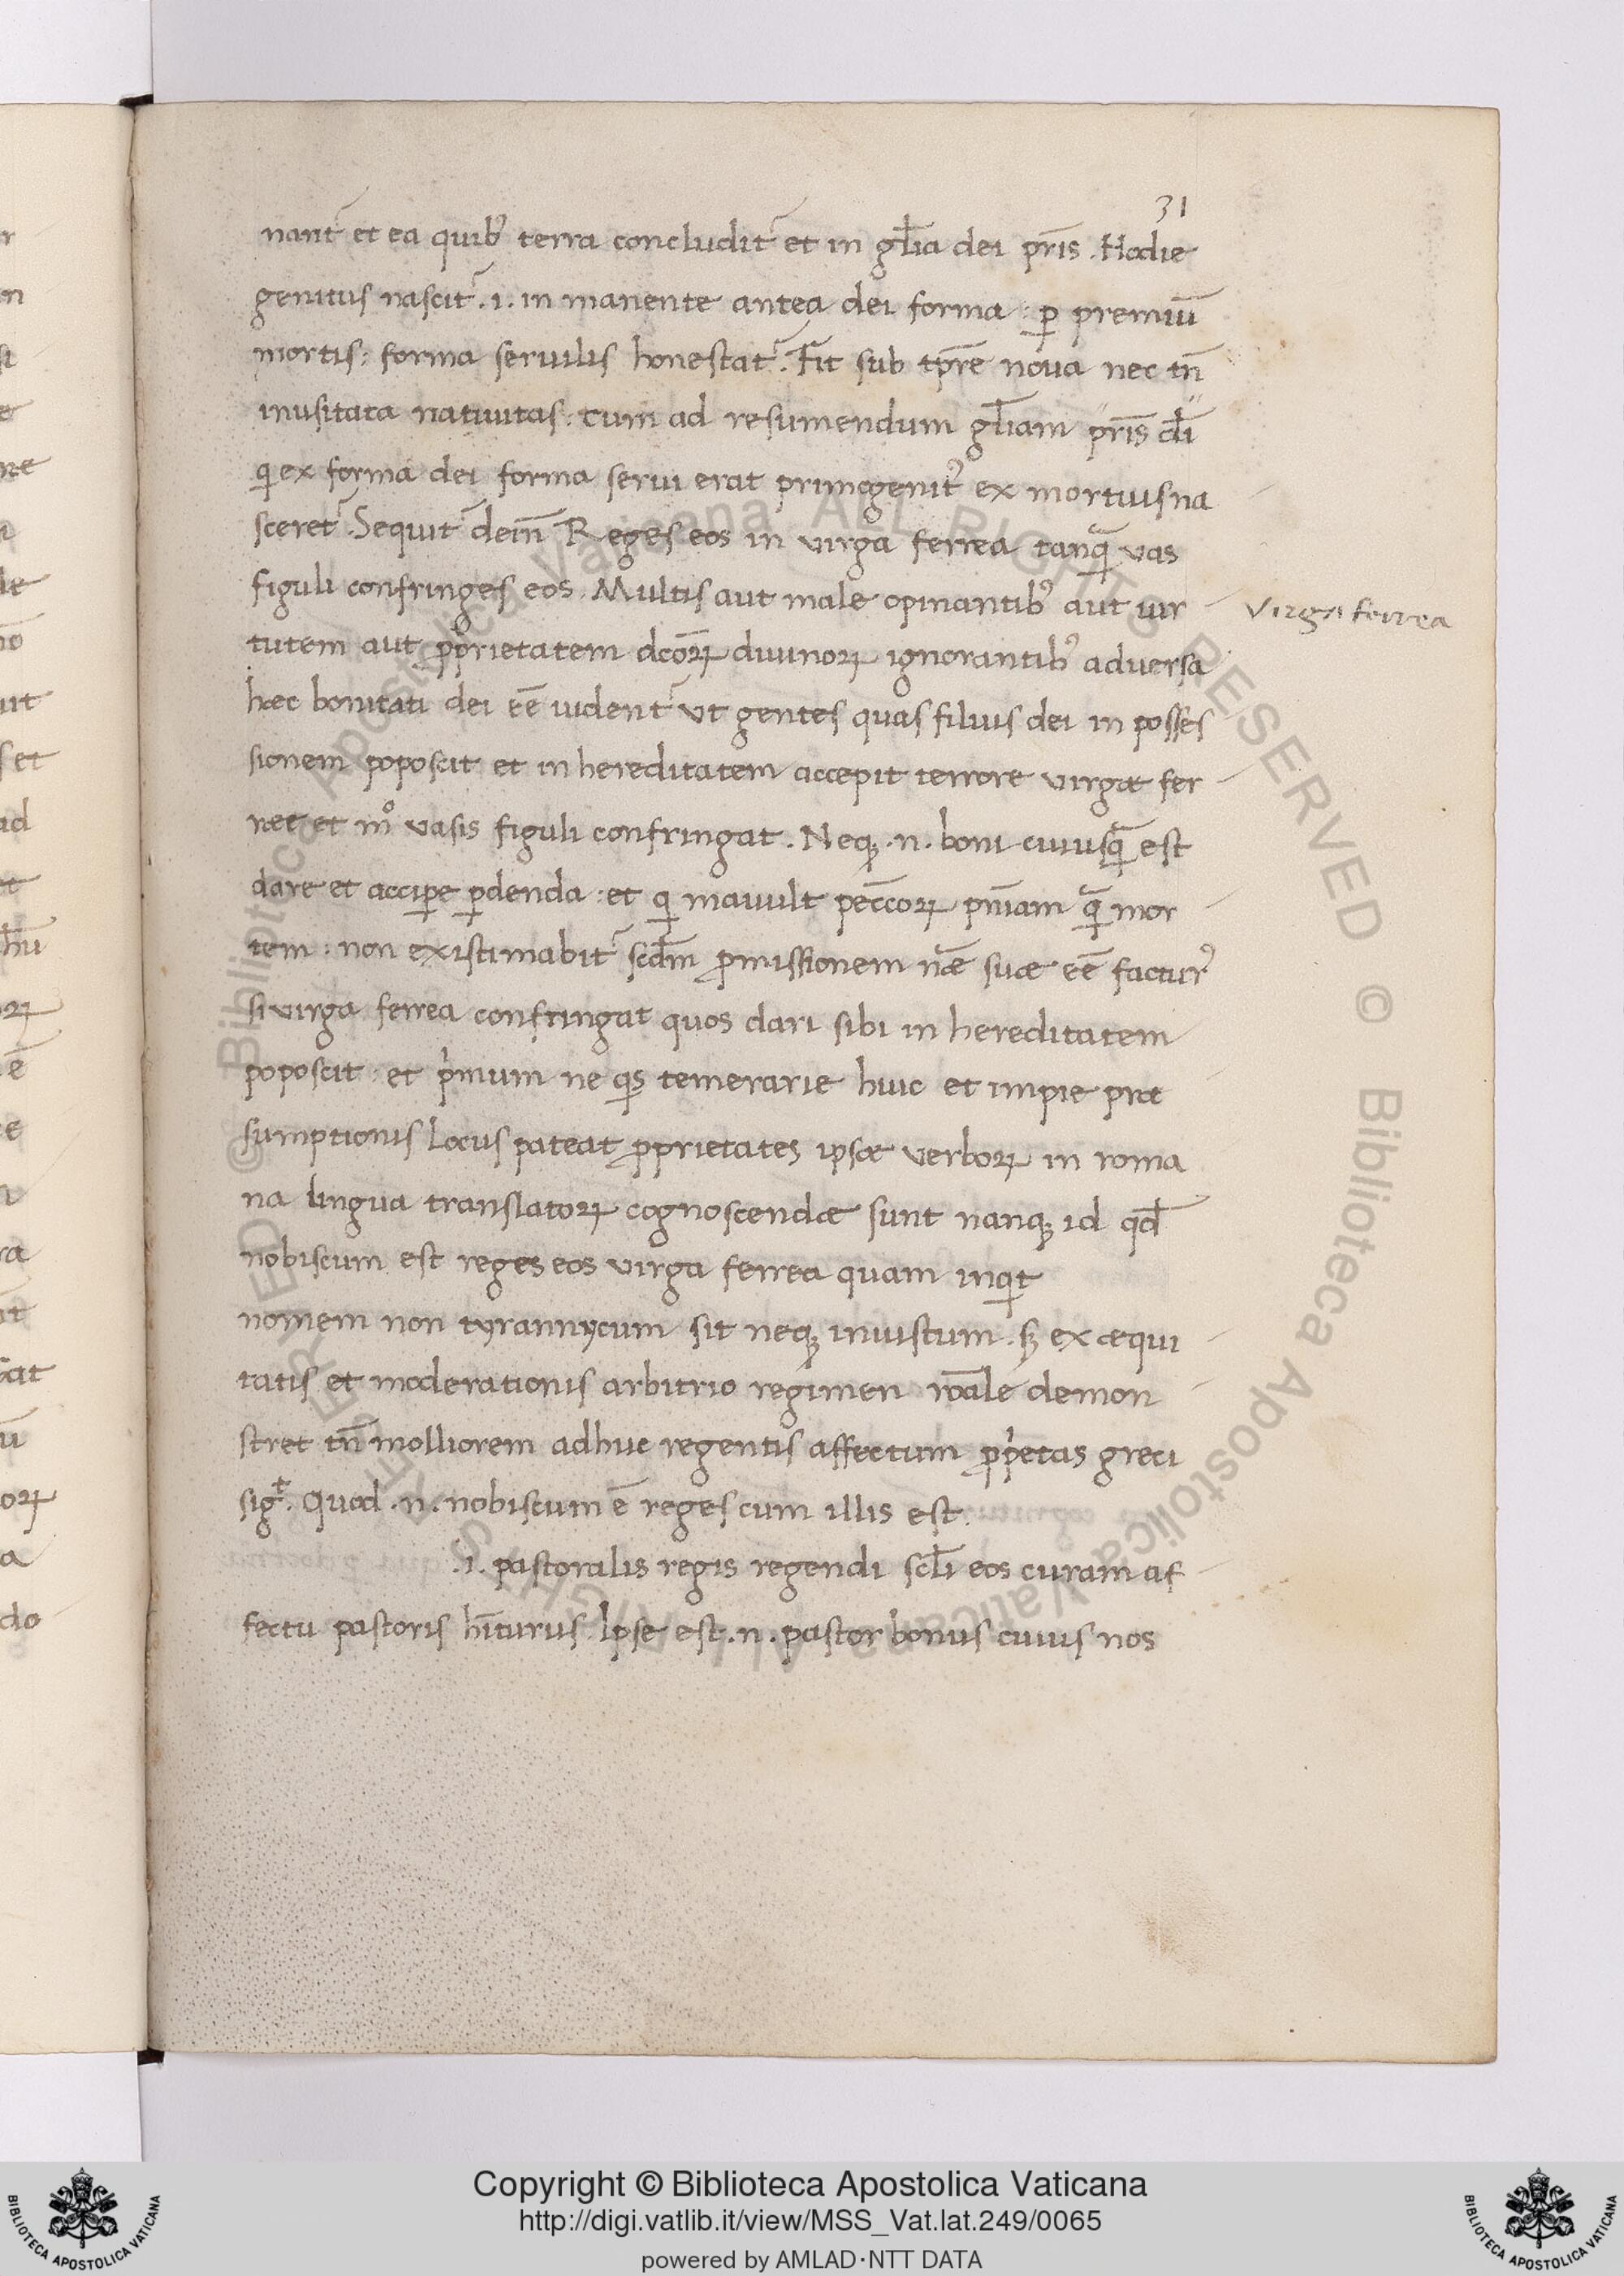 31
nant᷑ et ea quibꝰ terra concludit᷑ et in gl̄ia dei pr̄is . Hodie
genitus nascit᷑ .i. in manente antea dei forma : ꝑ premiū
mortis : forma seruilis honestat᷑ . Fit sub tp̄re noua nec tn̄
inusitata natiuitas : cum ad resumendum gl̄iam pr̄is
qi ex forma dei forma serui erat primogenitꝰ ex mortuis na
sceret᷑ . Sequit᷑ dein̄ Reges eos in virga ferrea tanq̄ vas
figuli confringes eos . Multis aut male opinantibꝰ aut uir
virga ferrea
tutem aut ꝓprietatem dcōꝝ diuinoꝝ ignorantibꝰ aduersa
hæc bonitati dei eē uident᷑ Vt gentes quas filius dei in posses
sionem poposcit et in hereditatem accepit terrore virgæ fer
reæ et mº vasis figuli confringat . Neqꝫ .n. boni cuiusq̄ est
dare et acciꝑe ꝑdenda : et qi mauult pec̄coꝝ pn̄iam q̄ mor
tem : non existimabit᷑ scd̄m ꝓmissionem nāe suæ eē facturꝰ
si virga ferrea confringat quos dari sibi in hereditatem
poposcit : et pimum ne qis temerarie huic et impie præ
sumptionis locus pateat ꝓprietates ipsæ verboꝝ in roma
na lingua translatoꝝ cognoscendæ sunt nanqꝫ id qd̄
nobiscum est reges eos virga ferrea quam inqit
nomem non tyrannycum sit neqꝫ iniustum . sꝫ ex æqui
tatis et moderationis arbitrio regimen demon
stret tn̄ molliorem adhuc regentis affectum ꝓpietas greci
sigt . Quod .n. nobiscum ē reges cum illis est .
.i. pastoralis regis regendi scl̄i eos curam af
fectu pastoris hīturus . Ipse est .n. pastor bonus cuius nos
Copyright © Biblioteca Apostolica Vaticana
http://digi.vatlib.it/view/MSS_Vat.lat.249/0065
powered by AMLAD·NTT DATA